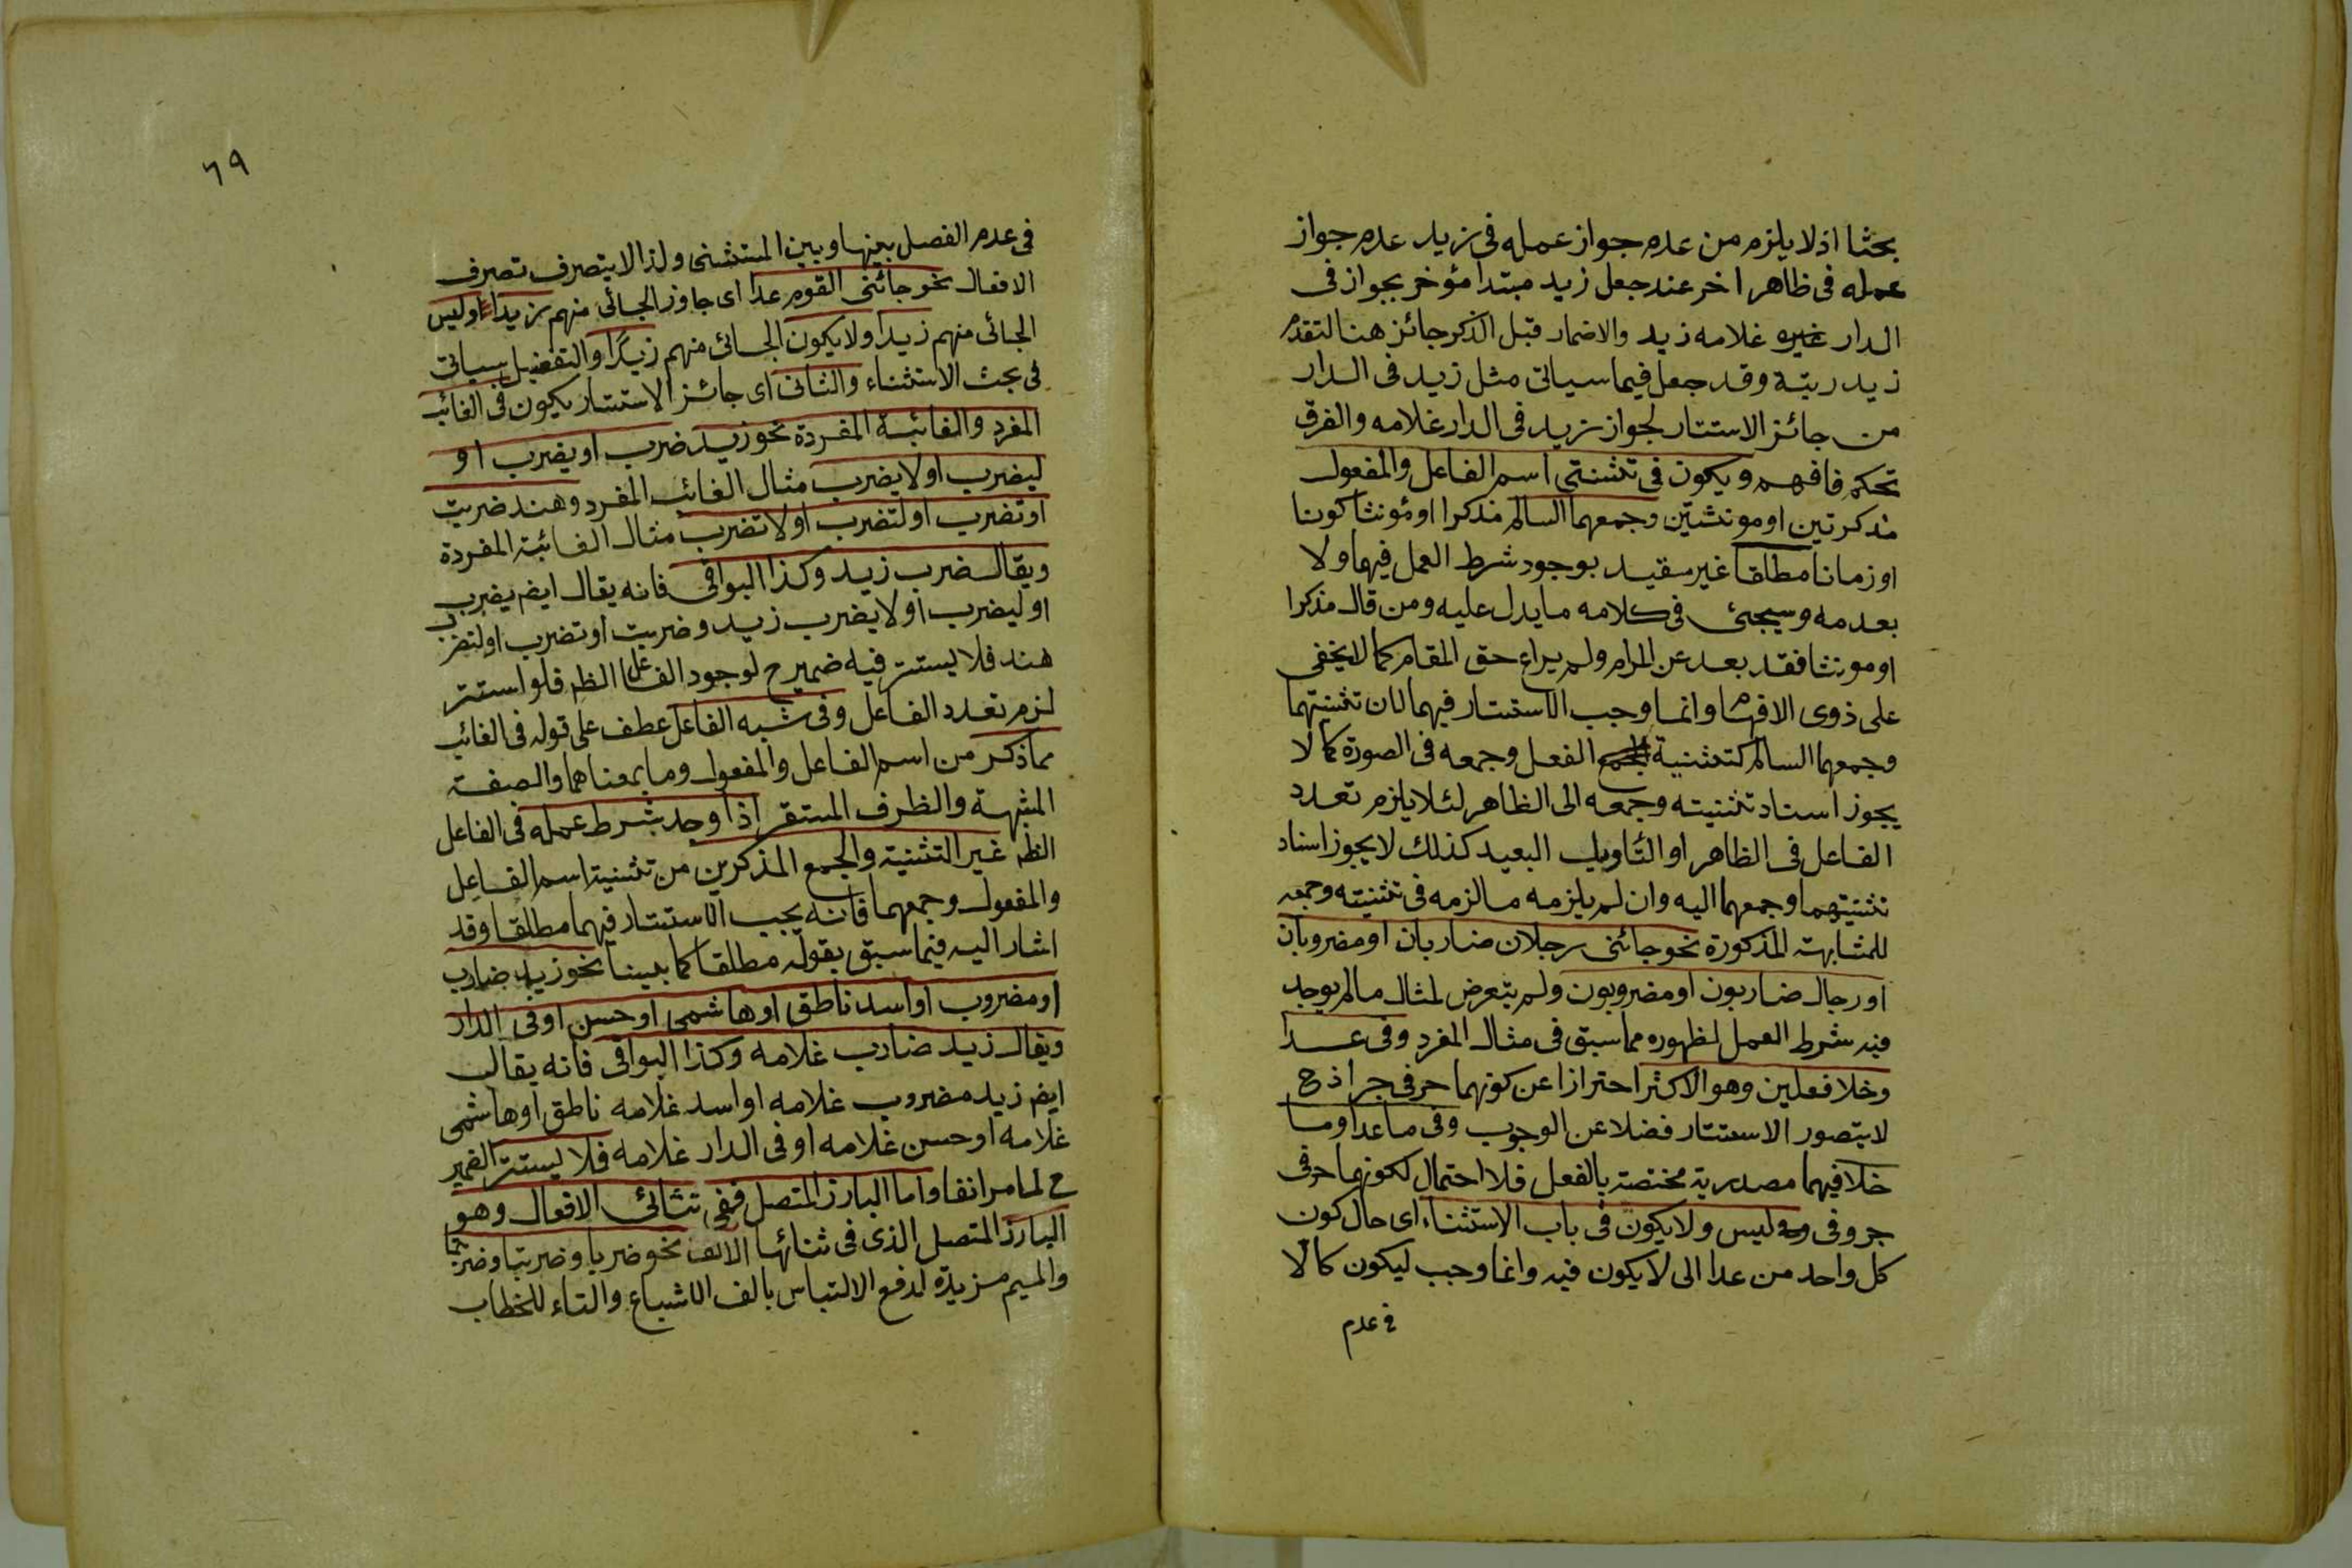 بحثا اذ لا يلزم من عدم جواز عمله فى زيد عدم جواز
عمله فى ظاهر اخر عند جعل زيد مبتدأ مؤخر بجواز فى
الدار غيره غلامه زيد والاضمار قبل الذكر جائز هنا لتقدم
زيد رتبة وقد جعل فيما سياتى مثل زيد فى الدار
من جائز الاستتار لجواز زيد فى الدار غلامه والفرق
تحكم فافهم ويكون فى تثنيتى اسم الفاعل والمفعول
مذكرتين او مونثتين وجمعهما السالم مذكرا او مؤنثا كونا
او زمانا مطلقا غير مقيد بوجود شرط العمل فيهما ولا
بعدمه وسيجئ فى كلامه ما يدل عليه ومن قال مذكرا
او مونثا فقد بعد عن المرام ولم يراع حق المقام كما لا يخفى
على ذوى الافهام وانما وجب الاستتار فيهما لان تثنيتهما
وجمعهما السالم كتثنية الفعل وجمعه فى الصورة كما لا
يجوز اسناد تثنيته وجمعه الى الظاهر لئلا يلزم تعدد
الفاعل فى الظاهر او التأويل البعيد كذلك لا يجوز اسناد
تثنيتهما وجمعهما اليه وان لم يلزمه ما لزمه فى تثنيته وجمعه
للمشابهة المذكورة نحو جائنى رجلان ضاربان او مضروبان
او رجال ضاربون او مضروبون ولم يتعرض لمثال ما لم يوجد
فيه شرط العمل لظهوره مما سبق فى مثال المفرد وفى عدا
وخلا فعلين وهو الاكثر احترازا عن كونهما حرفى جر اذ ح
لا يتصور الاستتار فضلا عن الوجوب وفى ما عدا وما
خلا فيهما مصدرية مختصة بالفعل فلا احتمال لكونهما حرفى
جر وفى ليس ولا يكون فى باب الاستثناء اى حال كون
كل واحد من عدا الى لا يكون فيه وانما وجب ليكون كالا
فى عدم
٦٩
فى عدم الفصل بينها وبين المستثنى ولذا لا يتصرف تصرف
الافعال نحو جائنى القوم عدا اى جاوز الجائى منهم زيدا او ليس
الجائى منهم زيدا ولا يكون الجائى منهم زيدا والتفصيل سياتى
فى بحث الاستثناء والثانى اى جائز الاستتار يكون فى الغائب
المفرد والغائبة المفردة نحو زيد ضرب او يضرب او
ليضرب او لا يضرب مثال الغائب المفرد وهند ضربت
او تضرب او لتضرب او لا تضرب مثال الغائبة المفردة
ويقال ضرب زيد وكذا البواقى فانه يقال ايض يضرب
او ليضرب او لا يضرب زيد وضربت او تضرب او لتضرب
هند فلا يستتر فيه ضمير ح لوجود الفاعل الظ فلو استتر
لزم تعدد الفاعل وفى شبه الفاعل عطف على قوله فى الغائب
مما ذكر من اسم الفاعل والمفعول وما بمعناهما والصفة
المشبهة والظرف المستقر اذا وجد شرط عمله فى الفاعل
الظ غير التثنية والجمع المذكرين من تثنية اسم الفاعل
والمفعول وجمعهما فانه يجب الاستتار فيهما مطلقا وقد
اشار اليه فيما سبق بقوله مطلقا كما بينا نحو زيد ضارب
او مضروب او اسد ناطق او هاشمى او حسن او فى الدار
ويقال زيد ضارب غلامه وكذا البواقى فانه يقال
ايض زيد مضروب غلامه او اسد غلامه ناطق او هاشمى
غلامه او حسن غلامه او فى الدار غلامه فلا يستتر الضمير
ح لما مر انفا واما البارز المتصل ففى تثانى الافعال وهو
البارز المتصل الذى فى ثنائها الالف نحو ضربا وضربتا وضربتما
والميم مزيدة لدفع الالتباس بالف الاشباع والتاء للخطاب